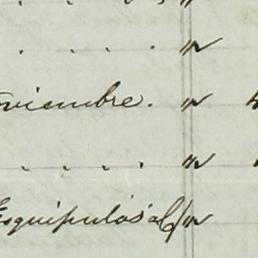 . . . . "
viembre. "
. . . . . "
Esquipulas al "